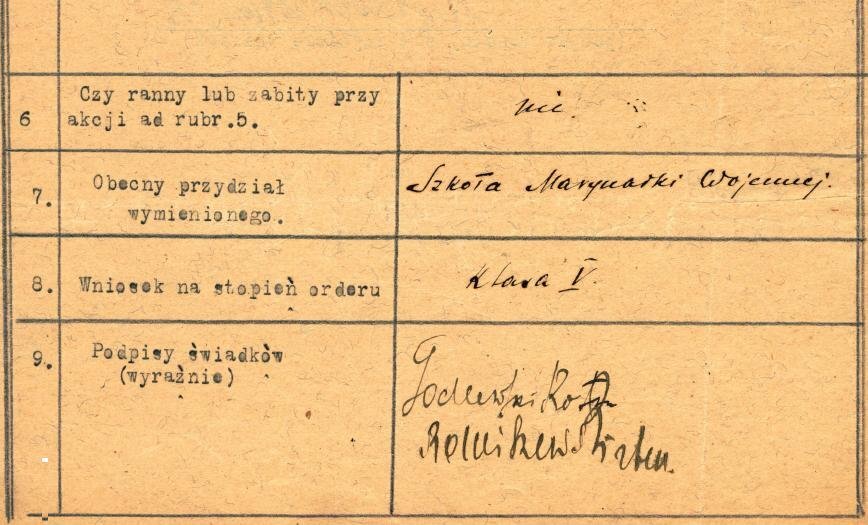 6 Czy ranny lub zabity przy
akcji ad rubr.5.
nie.
7. Obecny przydział
wymienionego.
Szkoła Marynarki Wojennej.
8. Wniosek na stopień orderu
Klasa V.
9. Podpisy świadków
(wyraźnie)
Godlewski